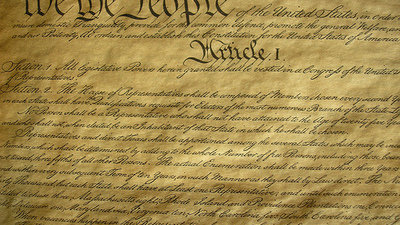 We the People of the United States, in order
insure domestic Tranquility, provide for the common defence, promote the general Welfare, and
and our Posterity, do ordain and establish this Constitution for the United States of America
Article. I.
Section. 1. All legislative Powers herein granted shall be vested in a Congress of the United
of Representatives.
Section. 2. The House of Representatives shall be composed of Members chosen every second Year
in each State shall have Qualifications requisite for Electors of the most numerous Branch of the State
No Person shall be a Representative who shall not have attained to the Age of twenty five
and who shall not, when elected, be an Inhabitant of that State in which he shall be chosen.
Representatives and direct Taxes shall be apportioned among the several States which may be
Numbers, which shall be determined by adding to the whole Number of free Persons, including those
three fifths of all other Persons. The actual Enumeration shall be made within three Years
and within every subsequent Term of ten Years, in such Manner as they shall by Law direct. The
thirty Thousand, but each State shall have at Least one Representative; and until such enumeration
three, Massachusetts eight, Rhode Island and Providence Plantations one,
Maryland six, Virginia ten, North Carolina five, South Carolina five, and
When vacancies happen in the Representation